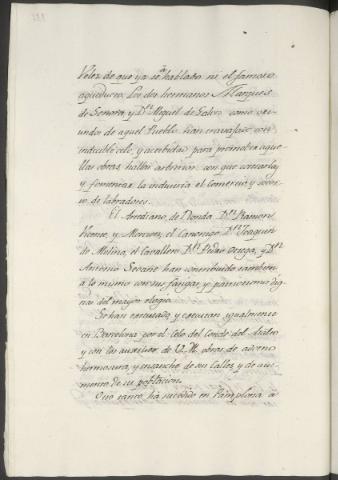 Velez de que ya se ha hablado ni el famoso
aqueducto. Los dos hermanos Marques
de Sonora, y Dn. Miguel de Galvez como oriundos
de aquel Pueblo han trabajado con
indecible celo, y actividad para promover aque
llas obras, hallar arbitrios con que costearlas,
y fomentar la industria el Comercio y
de labradores.
El Arcediano de Ronda Dn. Ramon
Vicente, y Monzon, el Canonigo Dn. Joaquin
de Molina, el Cavallero Dn. Pedro Ortega, y Dn.
Antonio Serano han contribuido tambien
a lo mismo con sus fatigas, y patriotismo dig
nas del mayor elogio.
Se han executado, y executan igualmente
en Barcelona por el Celo del Conde del Asalto
y con los auxilios de V. M. obras de adorno
hermosura, y ensanche de sus Calles, y de au
mento de su poblacion.
Otro tanto ha sucedido en Pamplona a